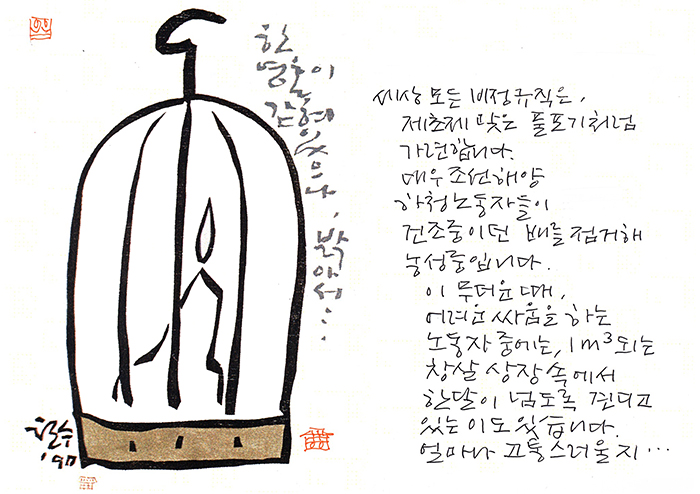 한
영혼이
갇혀있으나, 밝아서…
철수
세상 모든 비정규직은,
제초제 맞은 풀포기처럼
가련합니다.
대우조선해양
하청노동자들이
건조중이던 배를 점거해
농성중입니다.
이 무더운 때,
어려운 싸움을 하는
노동자 중에는, 1m³ 되는
창살 상장 속에서
한달이 넘도록 견디고
있는 이도 있습니다.
얼마나 고통스러울지…